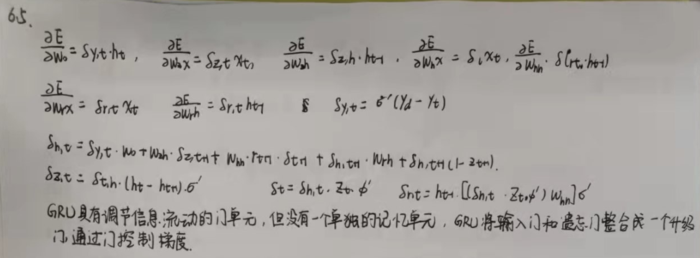 65.
∂E/∂W₀ = δy,t·ht, ∂E/∂Wzx = δz,t xt, ∂E/∂Wzh = δz,h·ht-1, ∂E/∂Whx = δ, xt, ∂E/∂Whh · δ(rt, ht-1)
∂E/∂Wrx = δr,t xt ∂E/∂Wrh = δr,t ht-1 δy,t = σ'(yd - yt)
δh,t = δy,t·W₀ + Wzh·δz,t+1 + Whh·rt+1·δt+1 + δh,t+1·Wrh + δh,t+1(1-zt+1).
δz,t = δt,h·(ht - ht-1)·σ' δt = δh,t·zt·φ' δr,t = ht-1·[(δh,t·zt,φ')Whh]σ'
GRU具有调节信息流动的门单元,但没有一个单独的记忆单元,GRU将输入门和遗忘门整合成一个升级
门,通过门控制梯度.